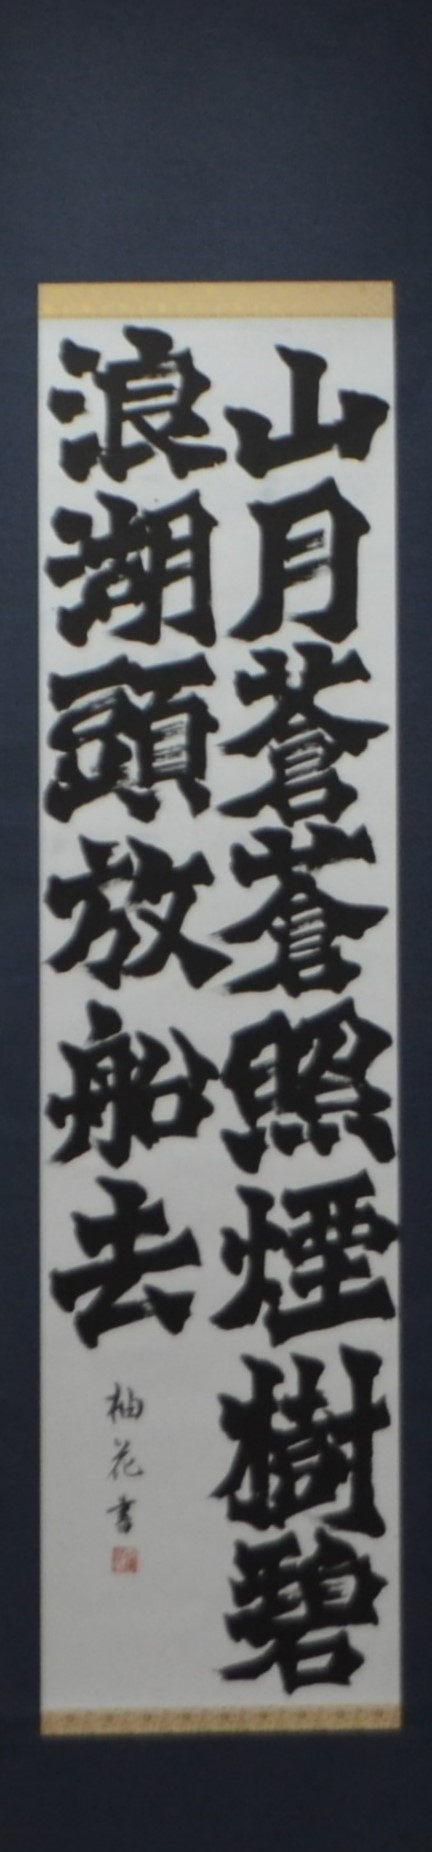 山月蒼蒼照煙樹碧
浪湖頭放船去
柚花書